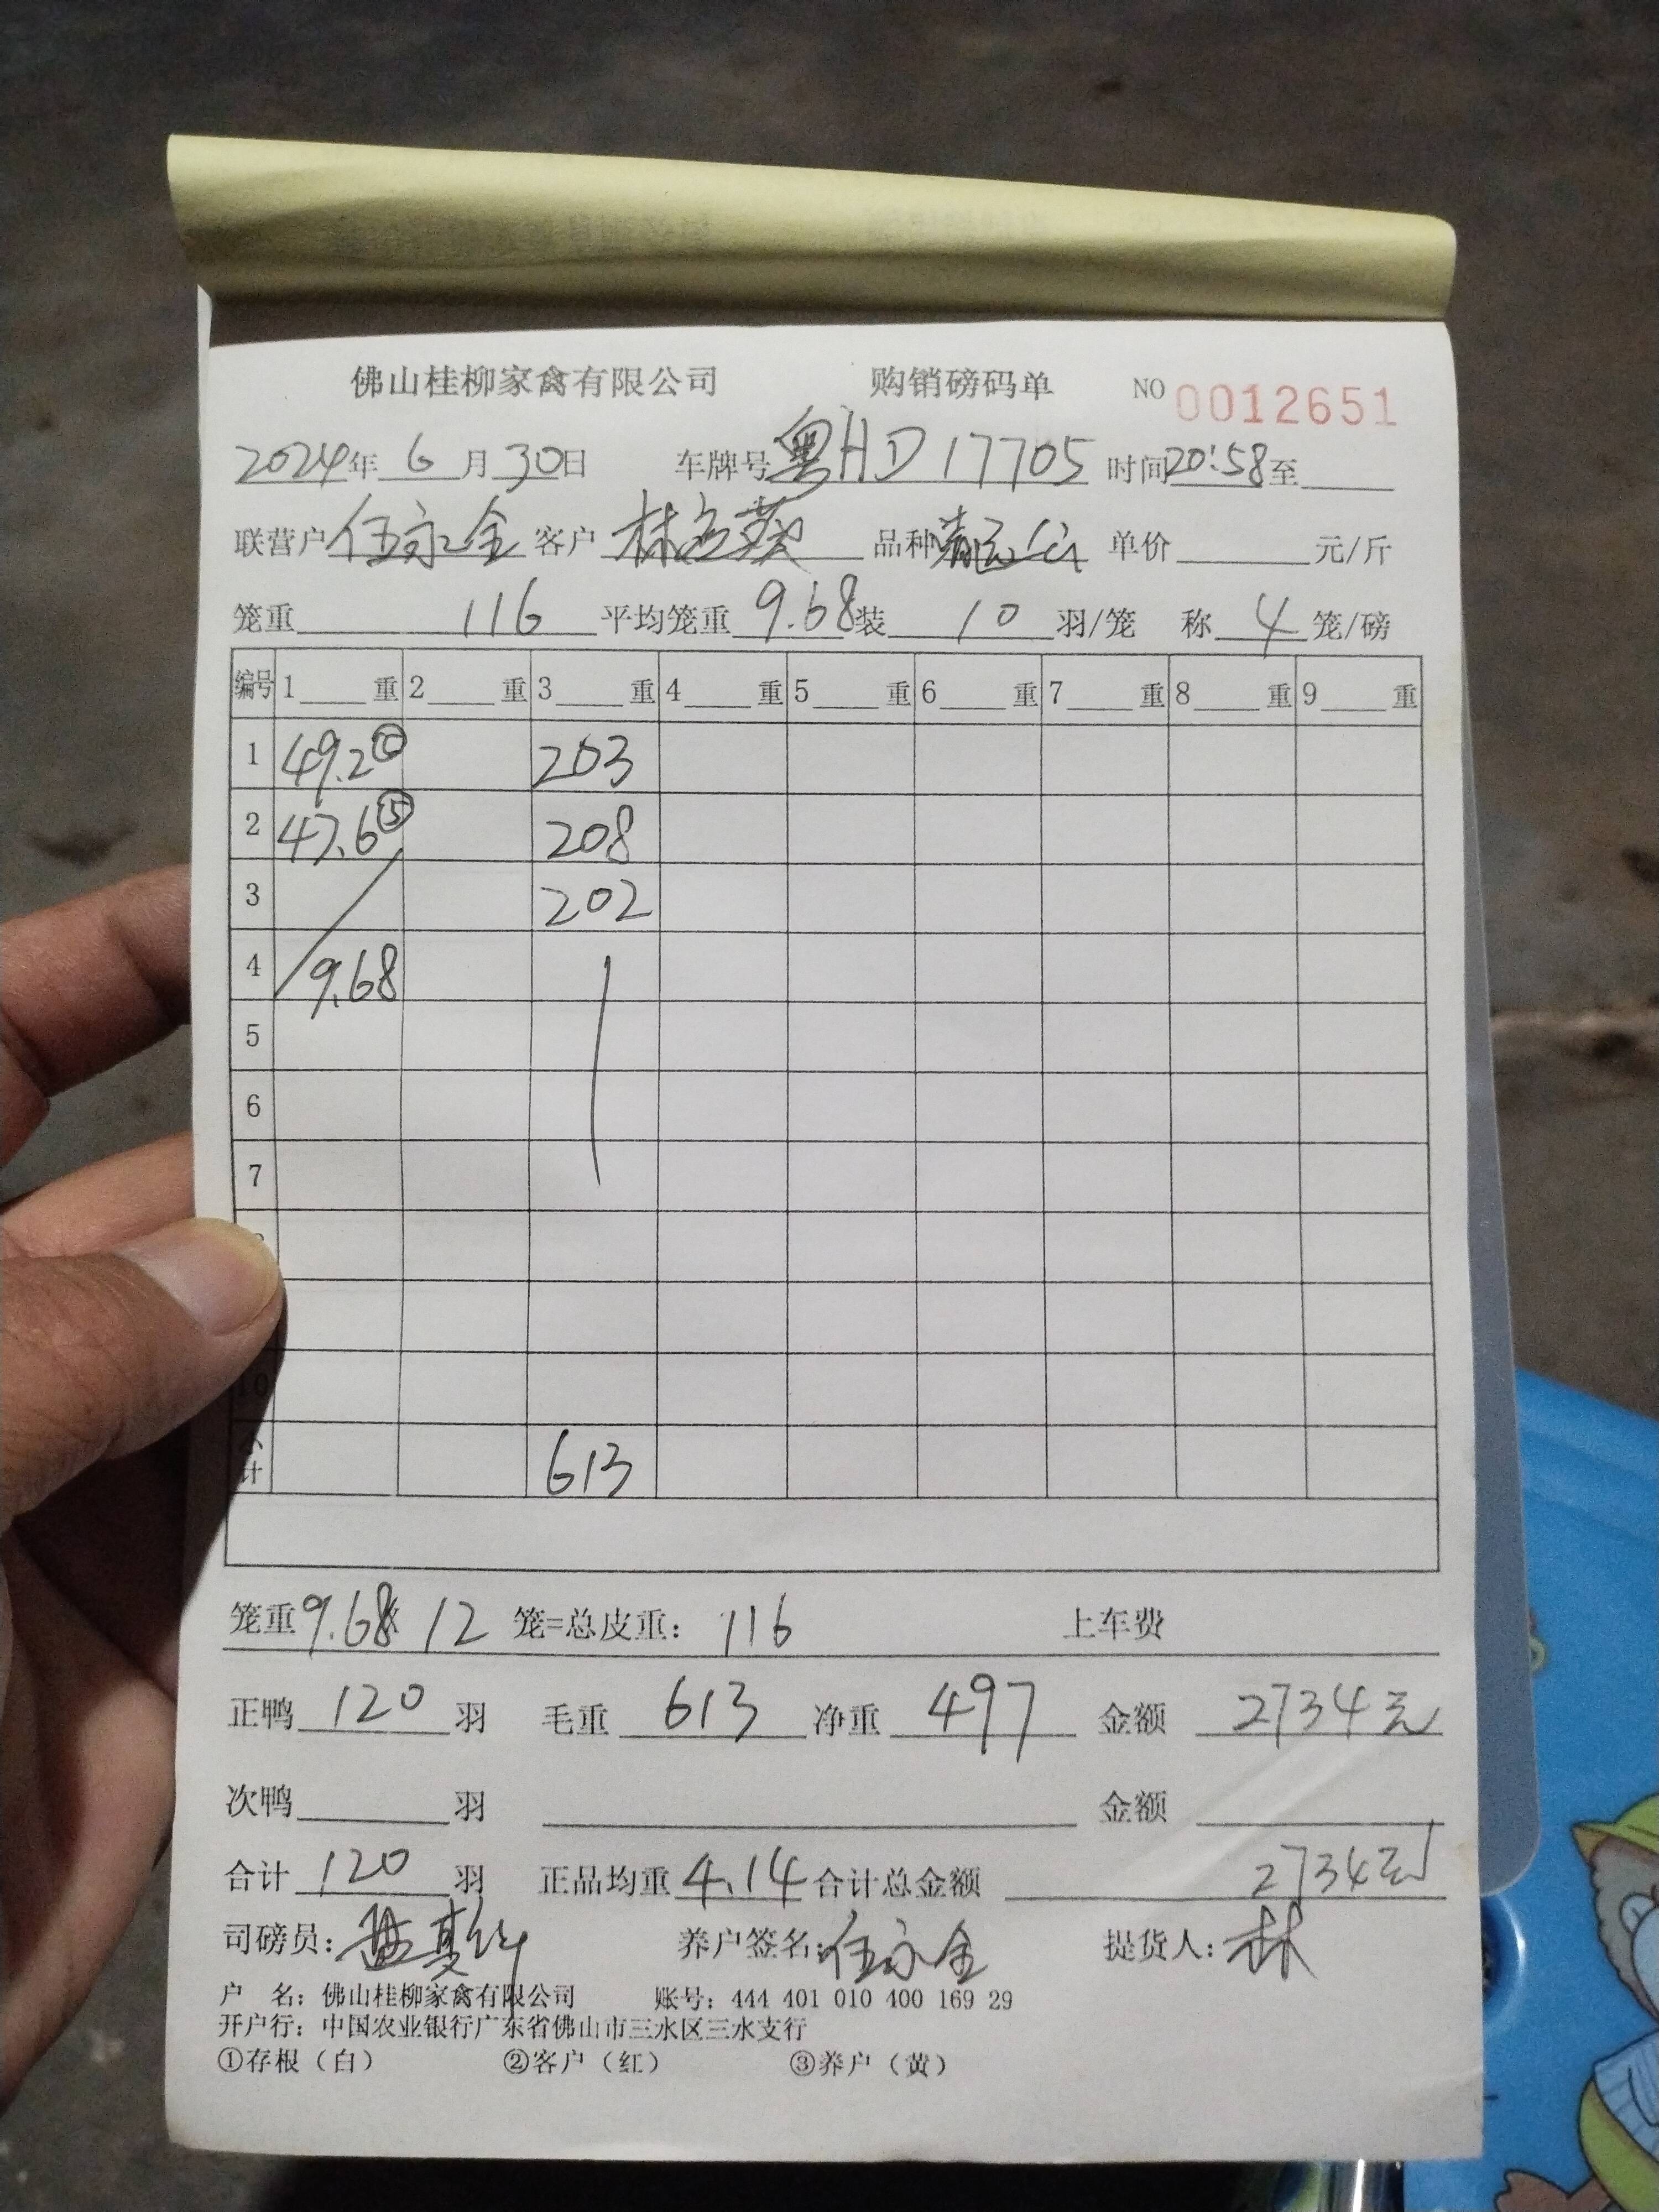 佛山桂柳家禽有限公司 购销磅码单 NO 0012651
2024年 6 月 30日 车牌号 粤HD17705 时间 20:58 至
联营户 任永全 客户 林 葵 品种 单价 元/斤
笼重 116 平均笼重 9.68 装 10 羽/笼 称 4 笼/磅
编号 1 重 2 重 3 重 4 重 5 重 6 重 7 重 8 重 9 重
1 49.2 203
2 47.6⑤ 208
3 202
4 9.68
5
6
7
10
计 613
笼重 9.68× 12 笼=总皮重: 116 上车费
正鸭 120 羽 毛重 613 净重 497 金额 2734元
次鸭 羽 金额
合计 120 羽 正品均重 4.14 合计总金额 2734元
司磅员: 养户签名: 任永全 提货人: 林
户 名: 佛山桂柳家禽有限公司 账号: 444 401 010 400 169 29
开户行: 中国农业银行广东省佛山市三水区三水支行
①存根（白） ②客户（红） ③养户（黄）